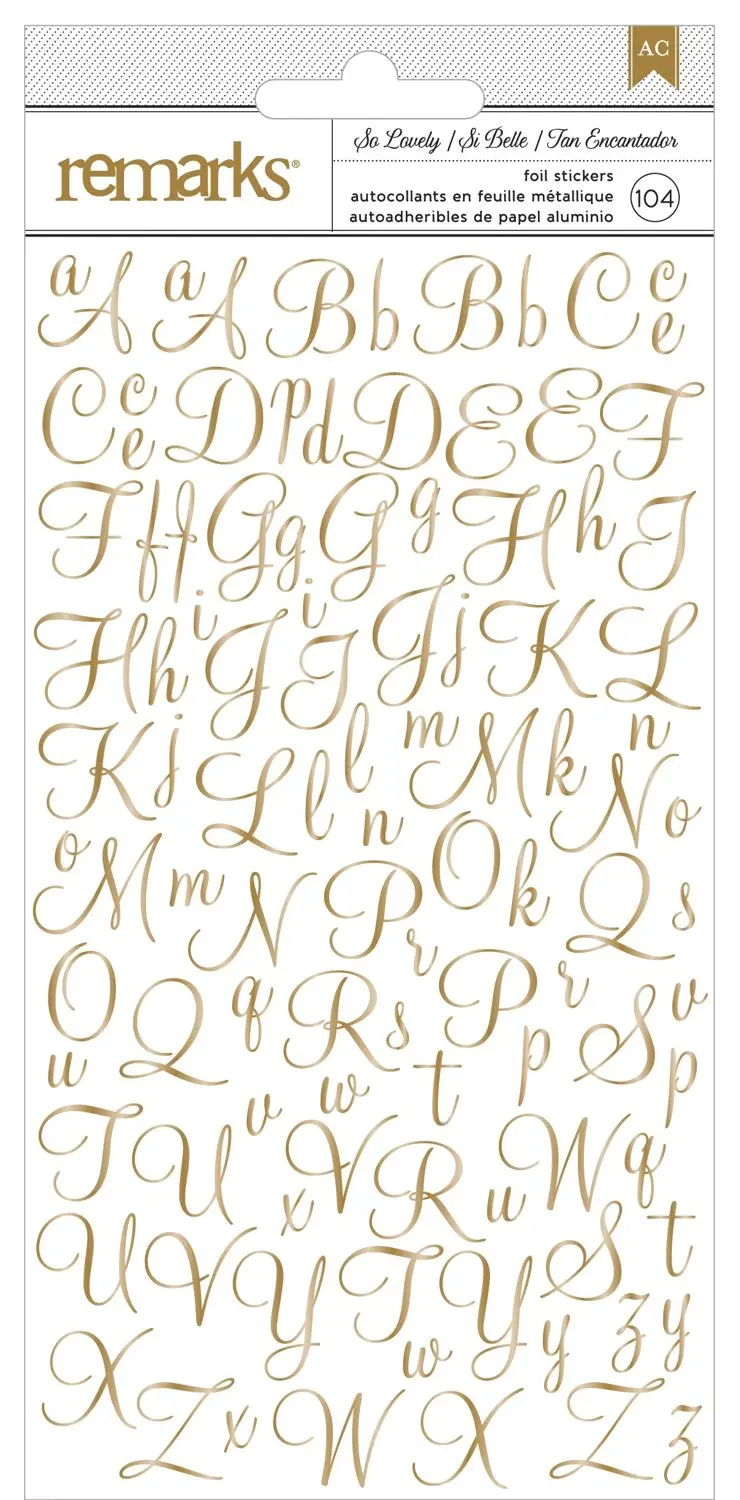 AC
remarks®
So Lovely / Si Belle / Tan Encantador
foil stickers
autocollants en feuille métallique
autoadheribles de papel aluminio
104
a A a A B b B b C c e
C c e D d d D E E F
F f f G g G g H h I
H h i J i I J j K L
K j L l l n m M k n N o
o M m N P r O k Q s
O u Q q R s P r p S v p
T U v w t V x R u W q
U V Y T w Y S y z t y
X Z x W X Z z